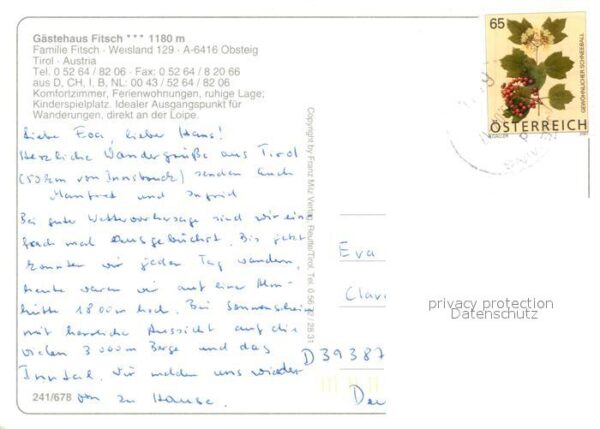 Gästehaus Fitsch *** 1180 m
Familie Fitsch · Weisland 129 · A-6416 Obsteig
Tirol · Austria
Tel. 0 52 64 / 82 06 · Fax: 0 52 64 / 8 20 66
aus D, CH, I, B, NL: 00 43 / 52 64 / 82 06
Komfortzimmer, Ferienwohnungen, ruhige Lage;
Kinderspielplatz. Idealer Ausgangspunkt für
Wanderungen, direkt an der Loipe.
Liebe Eva, lieber Hans!
Herzliche Wandergrüße aus Tirol
(50 km von Innsbruck) senden Euch
Manfred und Ingrid
Bei guter Wettervorhersage sind wir ein-
fach mal ausgebüchst. Bis jetzt
konnten wir jeden Tag wandern,
heute waren wir auf einer Alm-
hütte 1800 m hoch. Bei Sonnenschein
mit herrliche Aussicht auf die
vielen 3000m Berge und das
Inntal. Wir melden uns wieder
von zu Hause.
241/678
Copyright by Franz Milz Verlag, Reutte/Tirol, Tel. 0 56 72 / 26 31
65
GEWÖHNLICHER SCHNEEBALL
ÖSTERREICH
2007
Eva
Clar
privacy protection
Datenschutz
D 39387